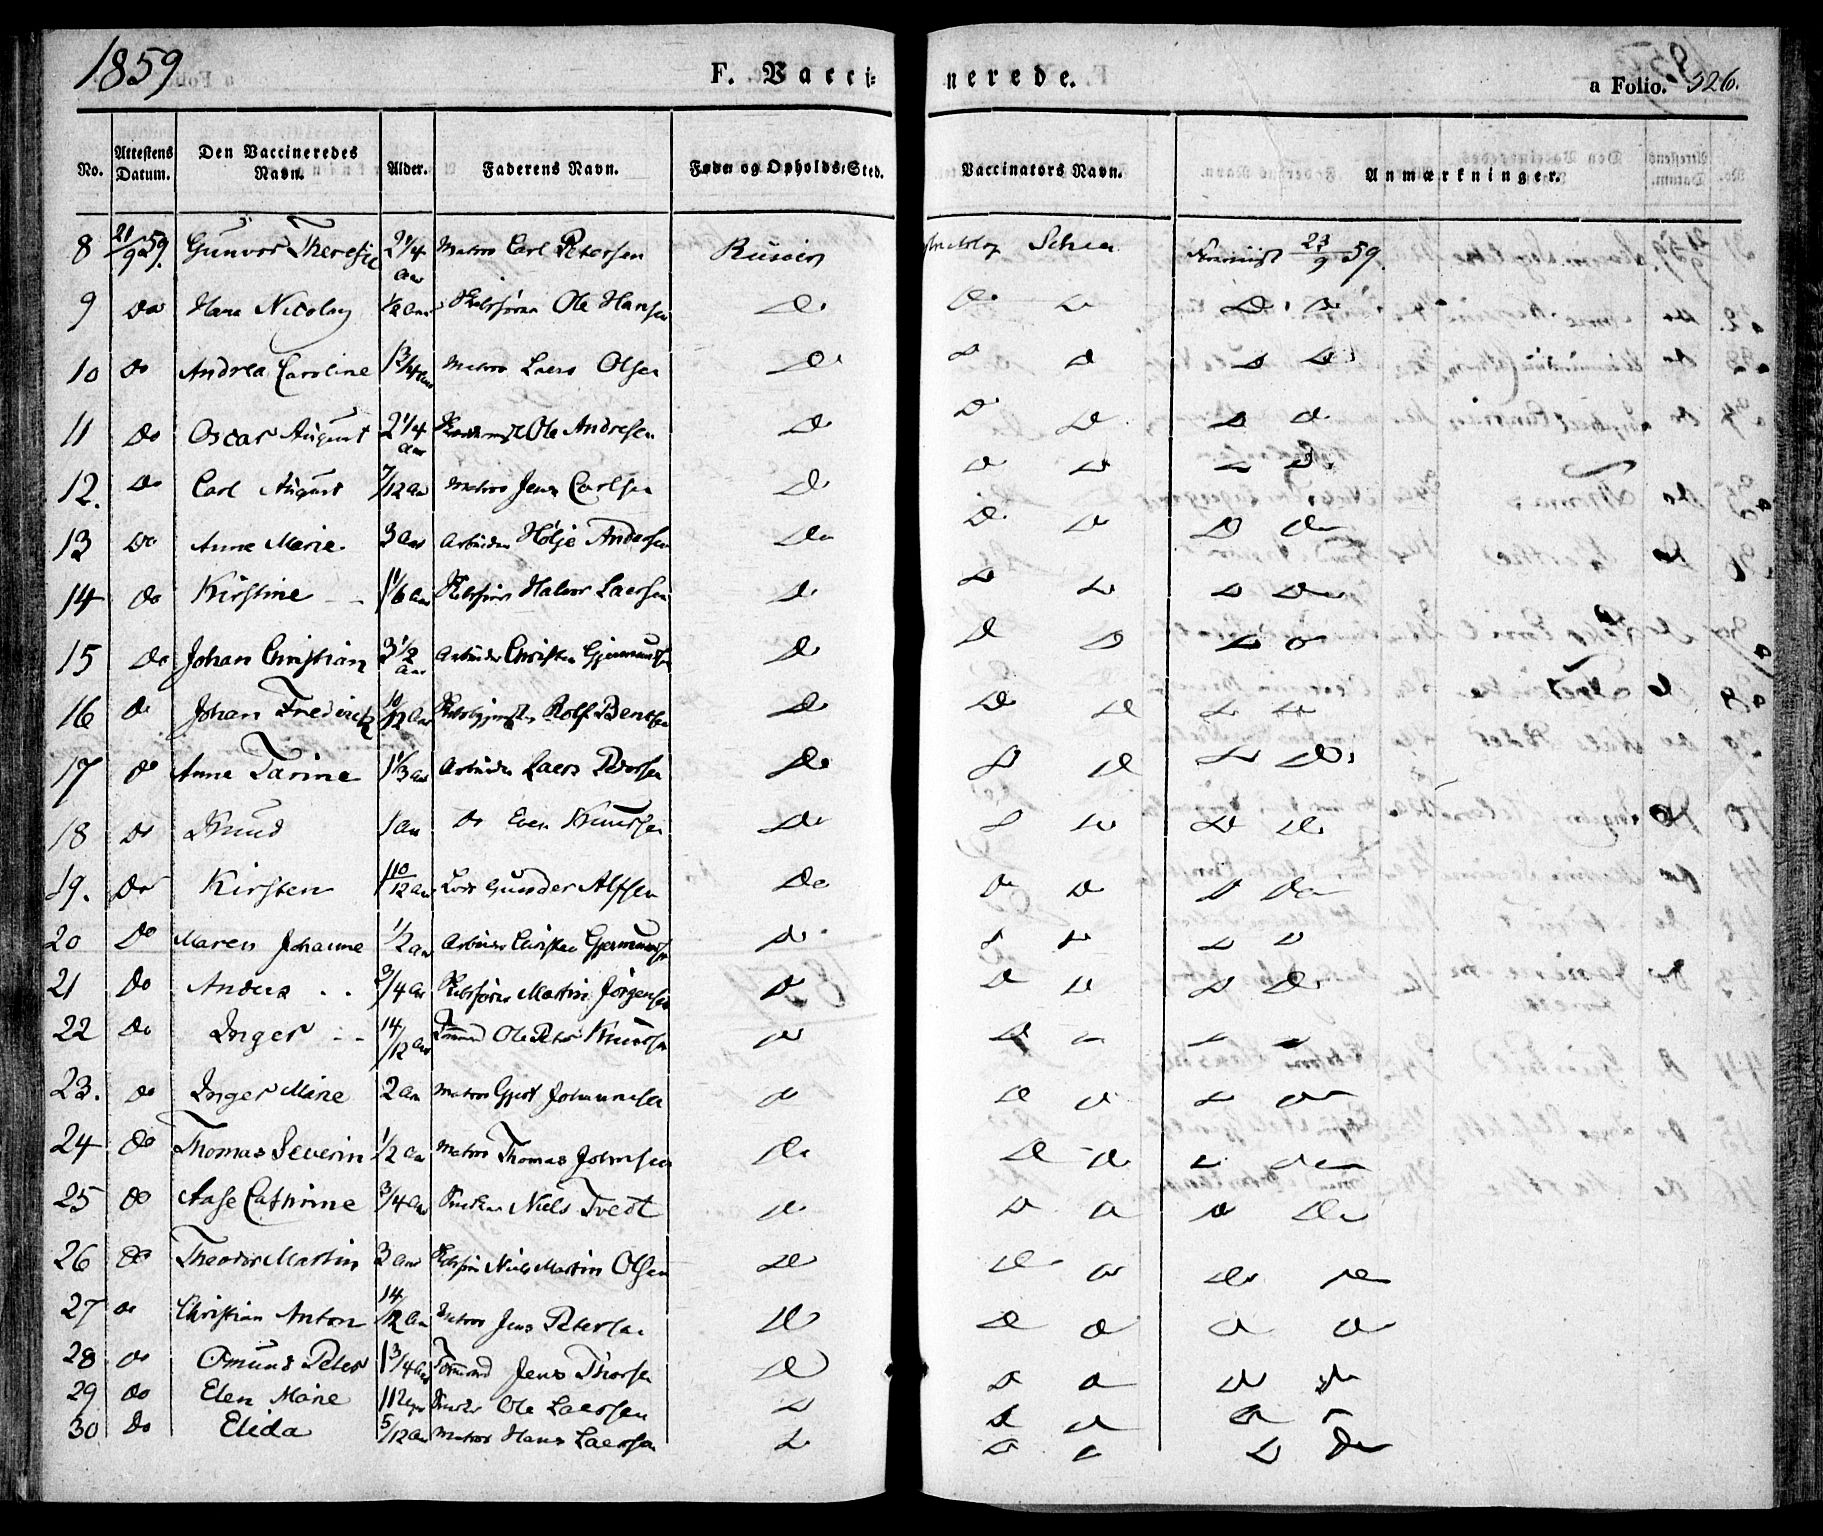 1859
F. Vacci-
nerede.
a Folio. 326.
No. Attestens Datum. Den Vaccineredes Navn. Alder. Faderens Navn. Føde og Opholds-Sted. Vaccinators Navn. Anmærkninger.
8 21/9 59. Gunvor Theresie 2 1/4 Aar Matros Carl Petersen Risøer Schia 23/9 59.
9 Do Hans Nicolay 1/2 Aar Ole Hansen Do Do Do Do Do
10 Do Andrea Caroline 1 3/4 Aar Matros Laers Olsen Do Do Do Do Do
11 Do Oscar August 2 1/4 Aar Ole Andresen Do Do Do Do Do
12. Do Carl August 7/12 Aar Matros Jens Carlsen Do Do Do Do Do
13 Do Anne Marie 3 Aar Arbeider Hølje Andersen Do Do Do Do Do
14 Do Kirstine 1 1/6 Aar Halvor Laersen Do Do Do Do Do
15 Do Johan Christian 3 1/2 Aar Arbeider Christen Do Do Do Do Do
16 Do Johan Frederick 10/12 Aar Rolf Bentsen Do Do Do Do Do
17 Do Anne Tarine 1 1/3 Aar Arbeider Laers Do Do Do Do Do
18 Do Knud 1 Aar Do Even Knudsen Do Do Do Do Do
19. Do Kirsten 1 10/12 Aar Lods Gunder Alfsen Do Do Do Do Do
20 Do Maren Johanne 1/2 Aar Arbeider Christen Do Do Do Do Do
21 Do Anders 3/4 Aar Martin Jörgensen Do Do Do Do Do
22 Do Inger 14/12 Aar Tömmermd Ole Peter Knudsen Do Do Do Do Do
23. Do Inger Marie 2 Aar Matros Gjert Johannesen Do Do Do Do Do
24 Do Thomas Severin 1/2 Aar Matros Thomas Johnsen Do Do Do Do Do
25 Do Aase Cathrine 3/4 Aar Niels Tvedt Do Do Do Do Do
26 Do Theodor Martin 3 Aar Niels Martin Olsen Do Do Do Do Do
27 Do Christian Anton 14/12 Aar Matros Jens Petersen Do Do Do Do Do
28 Do Omund Peter 1 3/4 Aar Tömmermd Jens Thorsen Do Do Do Do Do
29 Do Elen Marie Ole Laersen Do Do Do Do Do
30 Do Elida 5/12 Aar Matros Hans Laersen Do Do Do Do Do